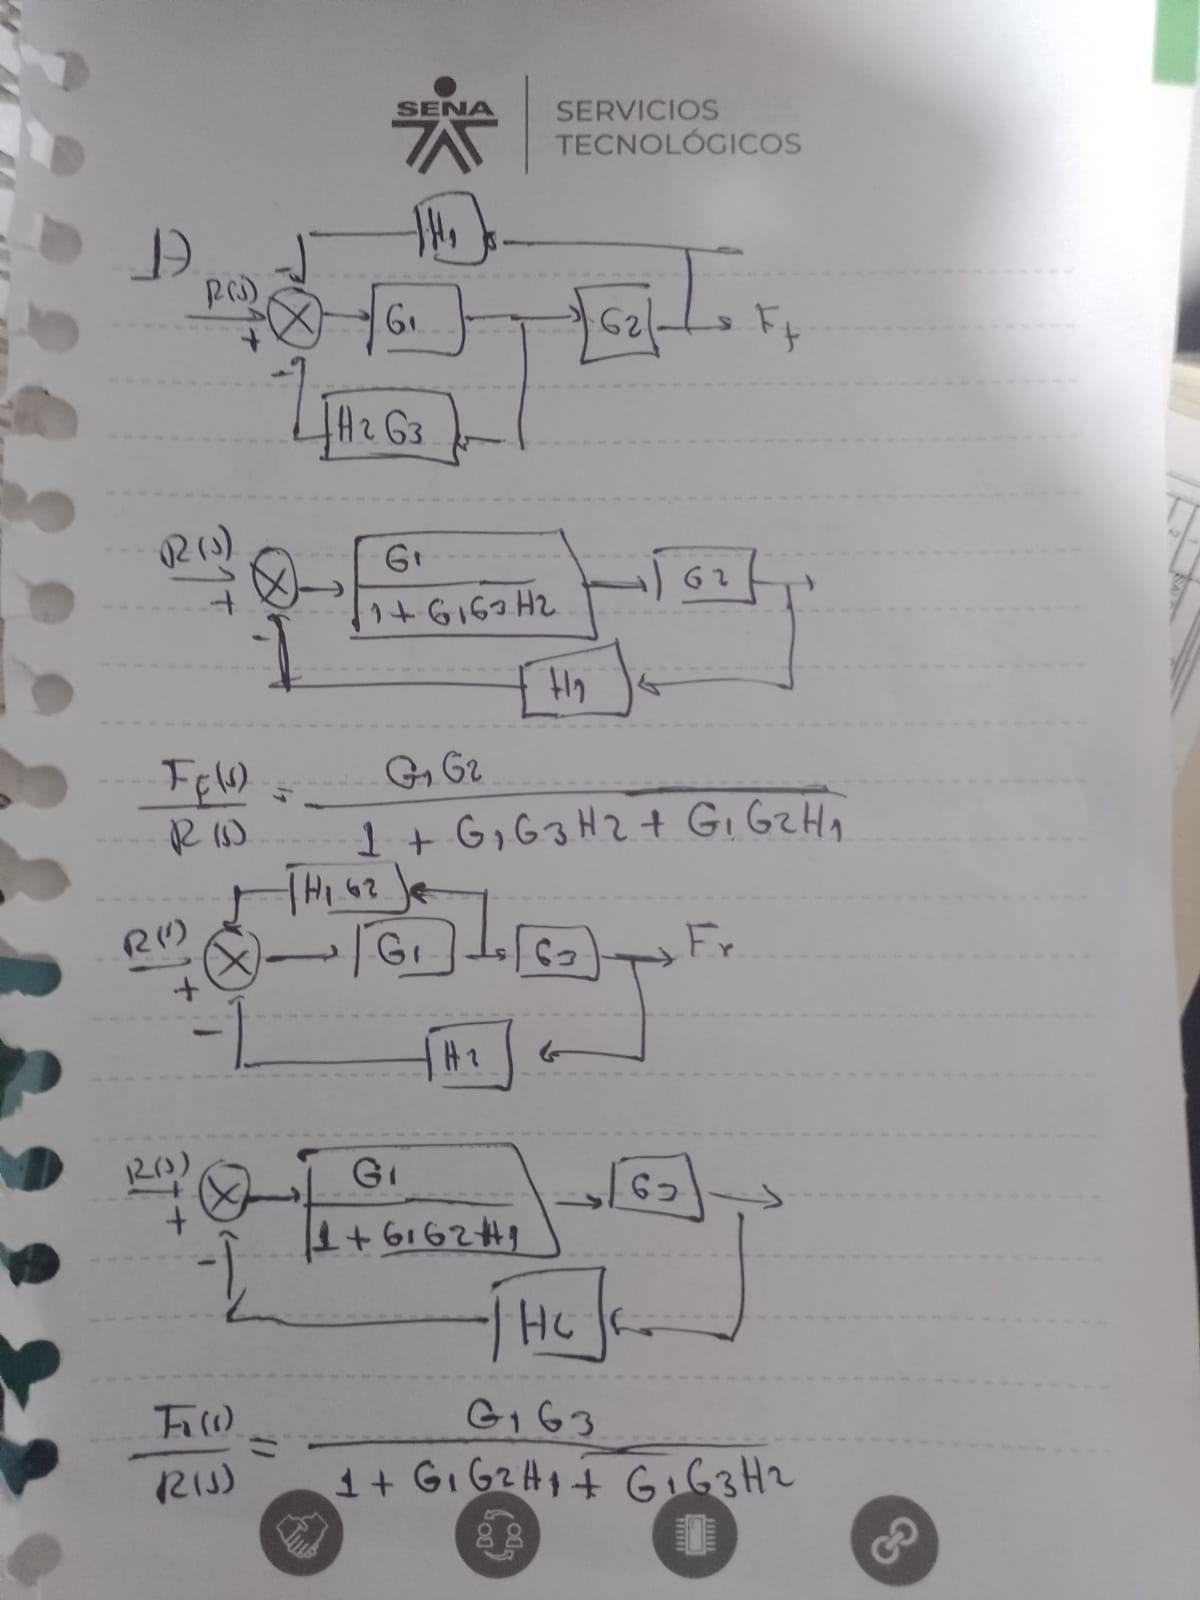 SENA
SERVICIOS
TECNOLÓGICOS
1)
H1
R(s)
+
-
G1
G2
Ff
-
H2 G3
R(s)
+
-
G1
1 + G1G3H2
G2
H1
Ff(s) / R(s) = G1G2 / 1 + G1G3H2 + G1G2H1
H1 G2
R(s)
+
-
G1
G3
Fr
H2
R(s)
+
-
G1
1 + G1G2H1
G3
H2
Fr(s) / R(s) = G1G3 / 1 + G1G2H1 + G1G3H2